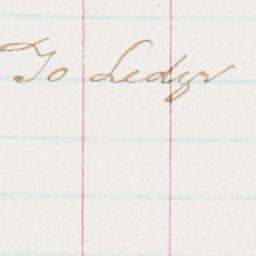 To Ledgr